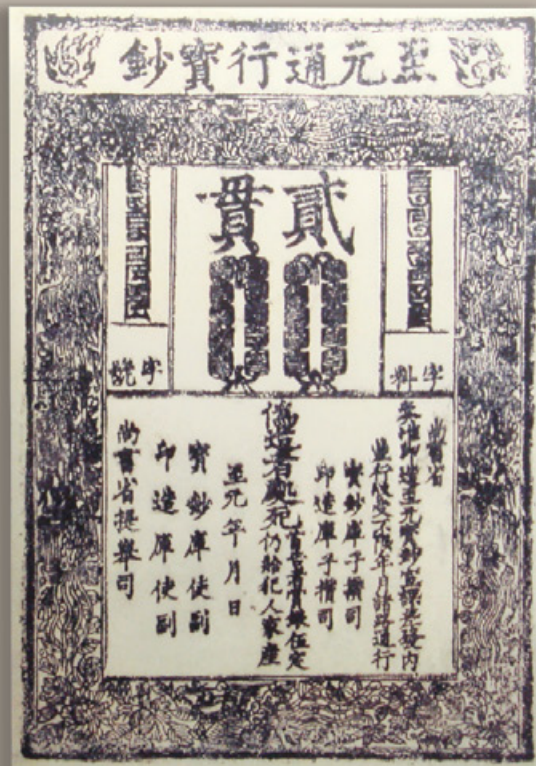 至元通行寶鈔
貳貫
字料
字號
尚書省
奏准印造至元寶鈔宣課差發內
並行收受不限年月諸路通行
寶鈔庫子攢司
印造庫子攢司
偽造者處死首告者賞銀伍定仍給犯人家產
至元年月日
寶鈔庫使副
印造庫使副
尚書省提舉司